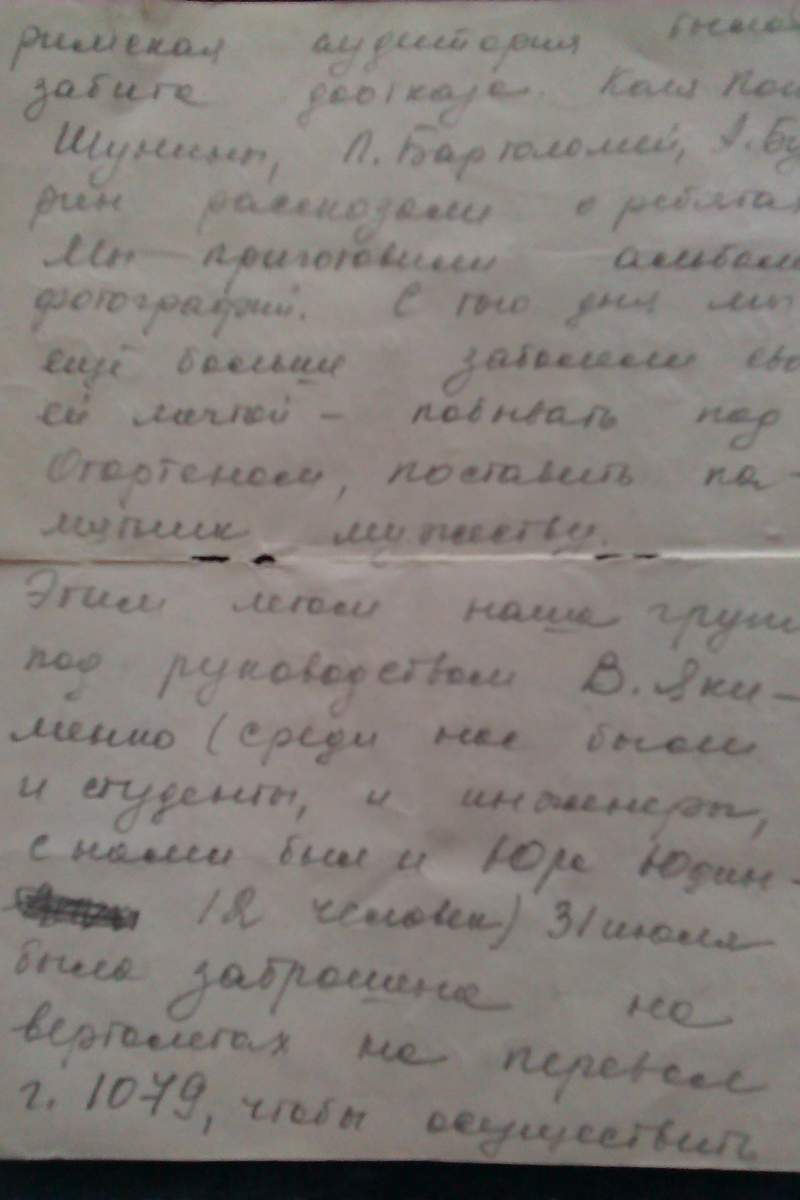 римская аудитория была
забита доотказа. Коля Пон
Шунины, П. Бартоломей, А. Бу
рин рассказали о ребятах
Мы приготовили альбом
фотографий. С того дня мы
ещё больше заболели сво
ей мечтой – побывать под
Отортеном, поставить па-
мятник мужеству.
Этим летом наша груп
под руководством В. Яки-
менко (среди нас были
и студенты, и инженеры,
с нами был и Юра Юдин -
12 человек) 31 июля
была заброшена на
вертолетах на перевал
г. 1079, чтобы осуществить